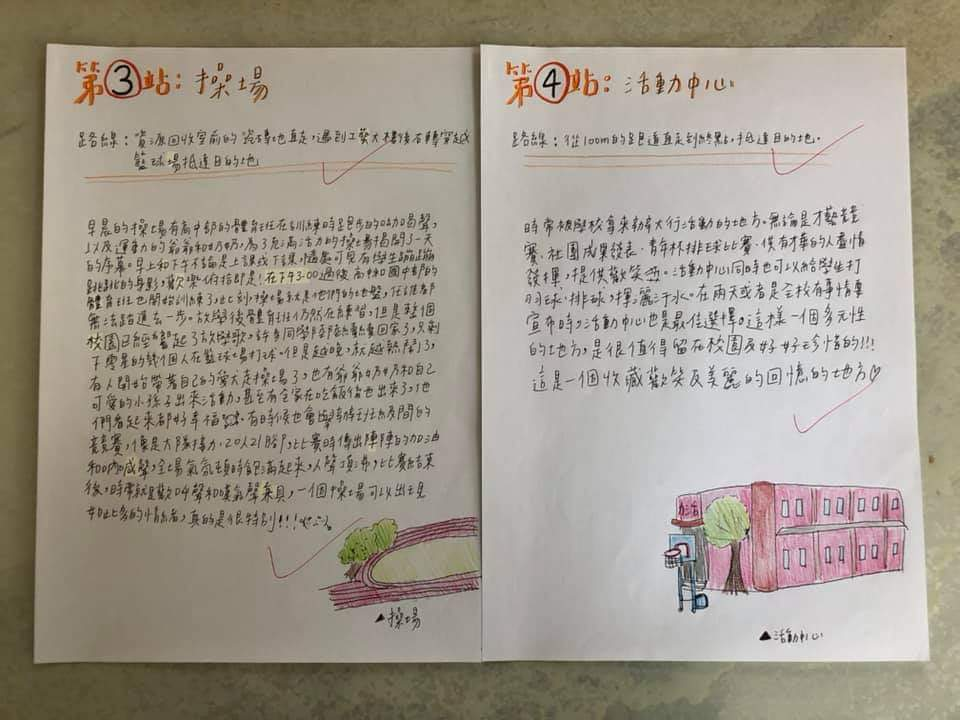 第3站：操場
路線：資源回收室前的磁磚地直走，遇到工藝大樓後右轉穿越
籃球場抵達目的地
早晨的操場有高中部的體育班在訓練時跑步的吆喝聲，
以及運動的爺爺和奶奶，為了充滿活力的操場揭開了一天
的序幕。早上和下午不論是上課或下課，隨處可見有學生蹦蹦
跳跳的身影，歡樂俯拾即是！在下午3:00過後，高中和國中部的
體育班也開始訓練了，此刻，操場就是他們的地盤，任誰都
無法踏進去一步。放學後體育班仍然在練習，但是整個
校園已經響起了放學歌，許多同學陸陸續續回家了，只剩
下零星的幾個人在籃球場打球。但是越晚，就越熱鬧了，
有人開始帶著自己的愛犬走操場了，也有爺爺奶奶和自己
可愛的小孫子出來活動，甚至有全家在吃飯後也出來了，他
們看起來都好幸福喔。有時候也會舉辦班級間的
競賽，像是大隊接力、20人21腳，比賽時傳出陣陣的加油
和吶喊聲，全場氣氛頓時飽滿起來，人聲頂沸，比賽結束
後，時常就是歡呼聲和嘆氣聲兼具，一個操場可以出現
如此多的情緒，真的是很特別！！！
▲操場
第4站：活動中心
路線：從100m的跑道直走到終點，抵達目的地。
時常被學校拿來舉行活動的地方。無論是才藝競
賽、社團成果發表、青年杯排球比賽，供有才華的人盡情
發揮，提供歡笑。活動中心同時也可以給學生打
羽球、排球，揮灑汗水。在雨天或者是全校有事情要
宣布時，活動中心也是最佳選擇。這樣一個多元性
的地方，是很值得留在校園及好好珍惜的！！！
這是一個收藏歡笑及美麗的回憶的地方
▲活動中心